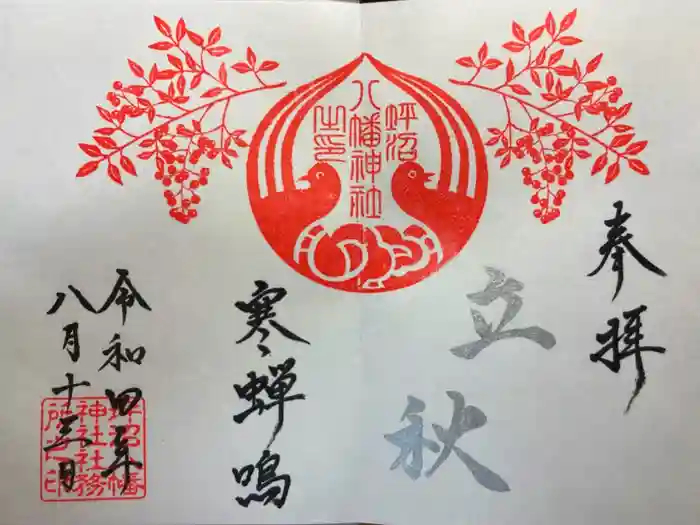 奉拝
立秋
蛶沼
八幡神社
之印
寒蝉鳴
令和四年
八月十三日
蛶沼八幡
神社社務
所之印